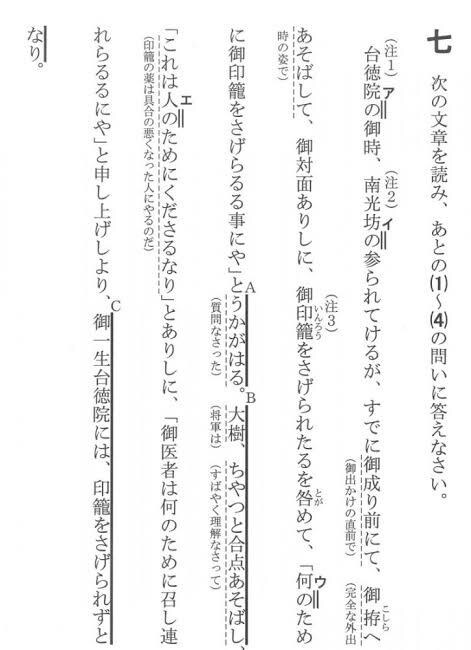 七　次の文章を読み、あとの⑴～⑷の問いに答えなさい。
（注１）
ア
（注２）
イ
台徳院の御時、南光坊の参られてけるが、すでに御成り前にて、御拵へ
こしら
（御出かけの直前で）
（完全な外出
（注３）
ウ
あそばして、御対面ありしに、御印籠をさげられたるを咎めて、「何のため
いんろう
とが
時の姿で）
A
B
に御印籠をさげらるる事にや」とうかがはる。大樹、ちやつと合点あそばし、
（質問なさった）
（将軍は）
（すばやく理解なさって）
エ
「これは人のためにくださるなり」とありしに、「御医者は何のために召し連
（印籠の薬は具合の悪くなった人にやるのだ）
C
れらるるにや」と申し上げしより、御一生台徳院には、印籠をさげられずと
なり。